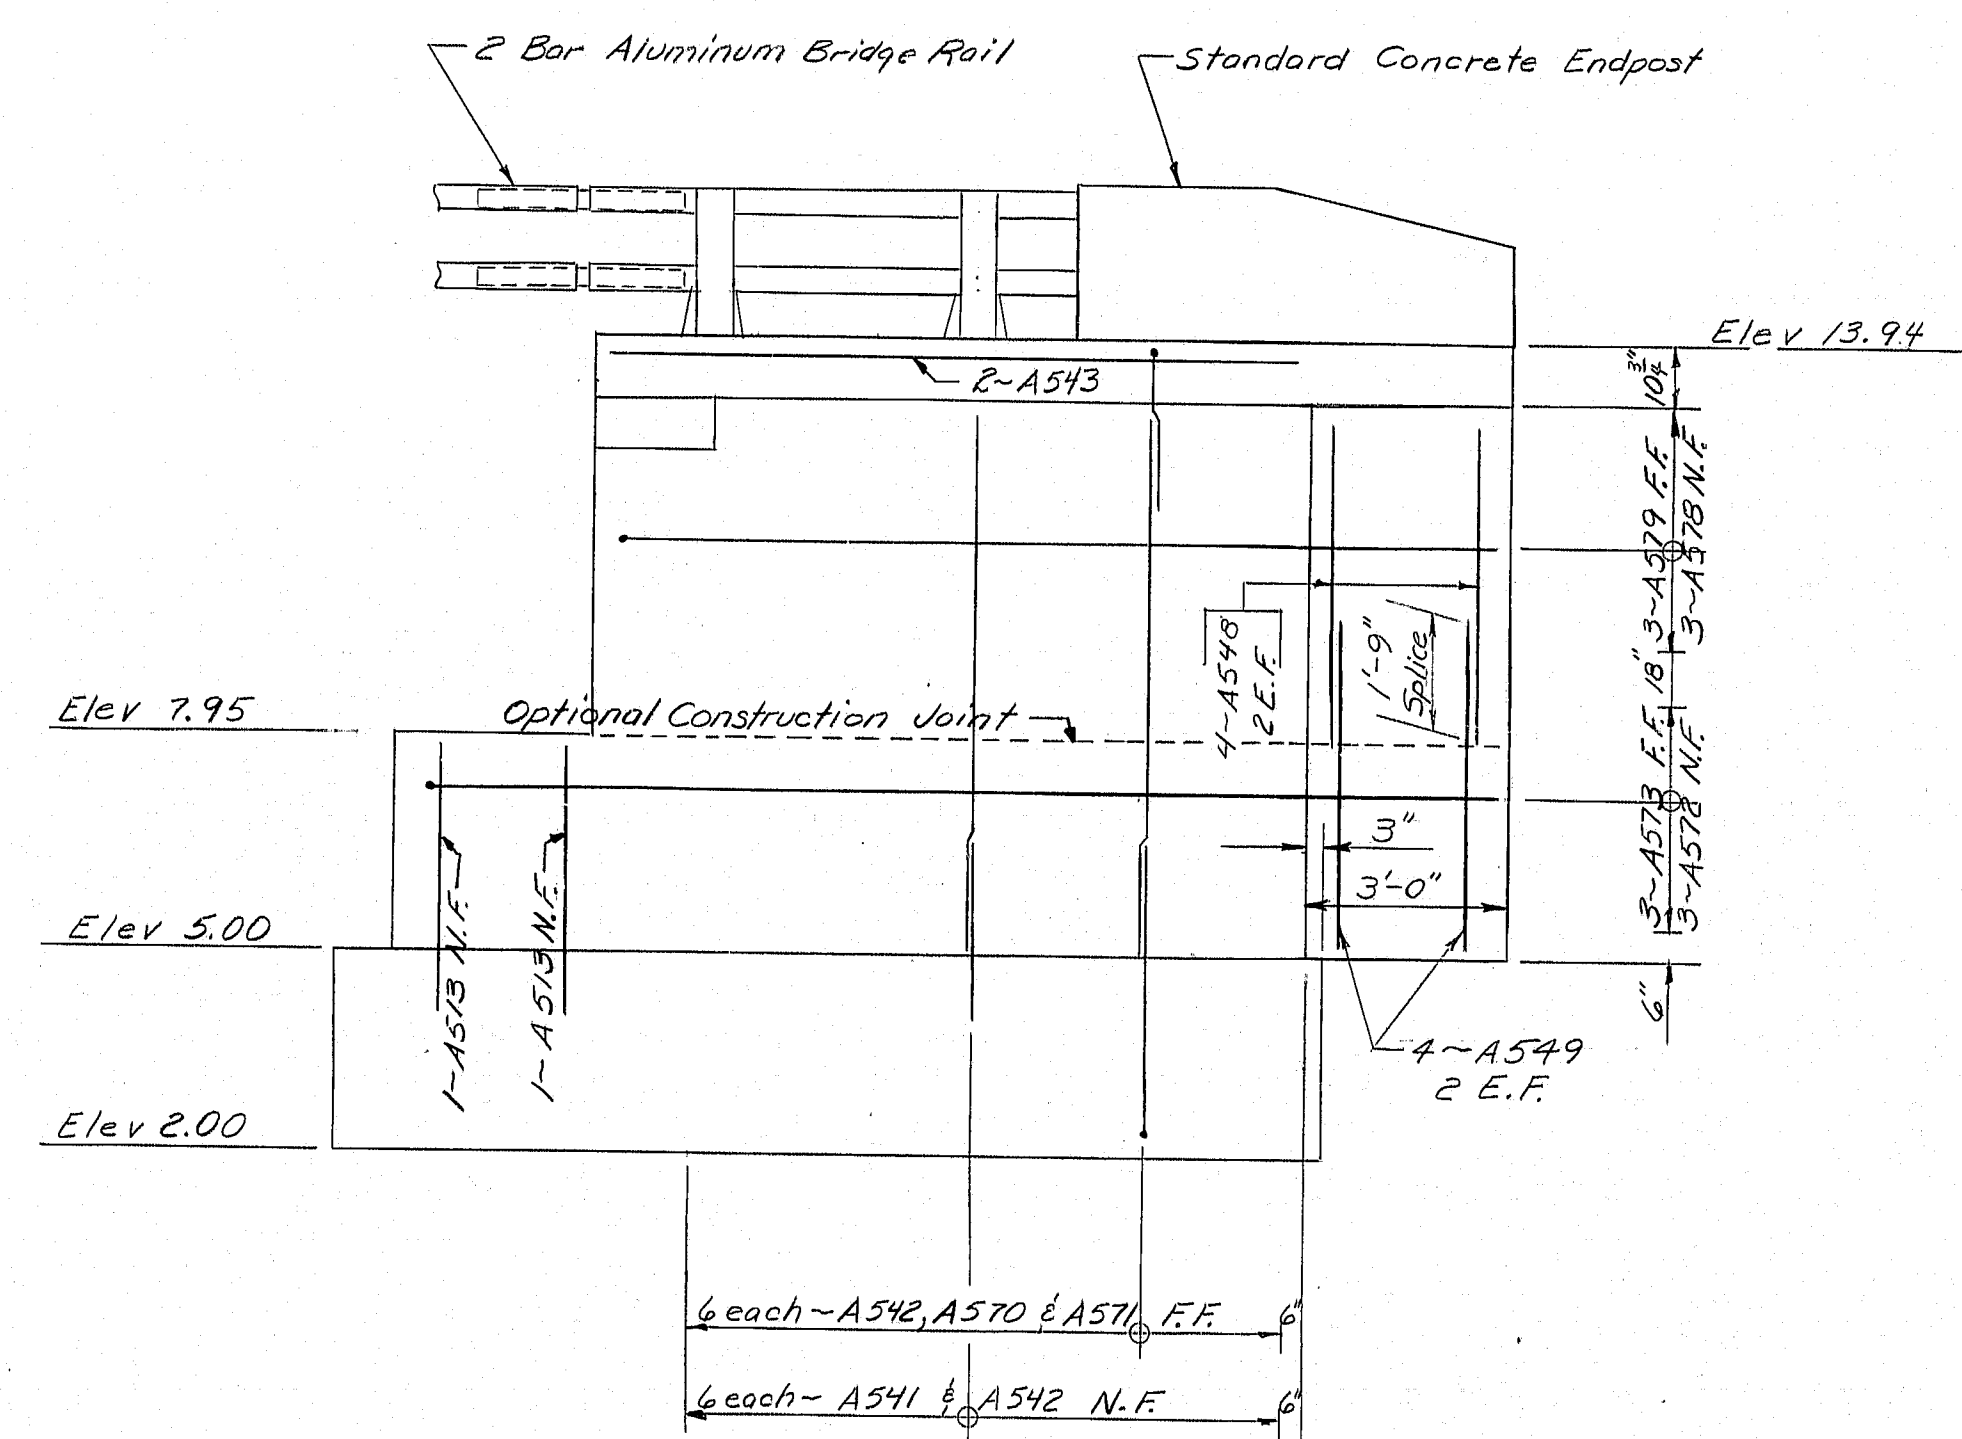 2 Bar Aluminum Bridge Rail
Standard Concrete Endpost
Elev 13.94
10 3/4"
2~A543
3~A579 F.F.
3~A578 N.F.
18"
4~A548
2 E.F.
1'-9"
Splice
Elev 7.95
Optional Construction Joint
3~A573 F.F.
3~A572 N.F.
3"
3'-0"
1~A513 N.F.
1~A513 N.F.
Elev 5.00
6"
4~A549
2 E.F.
Elev 2.00
6 each~A542, A570 & A571 F.F.
6"
6 each~ A541 & A542 N.F.
6"